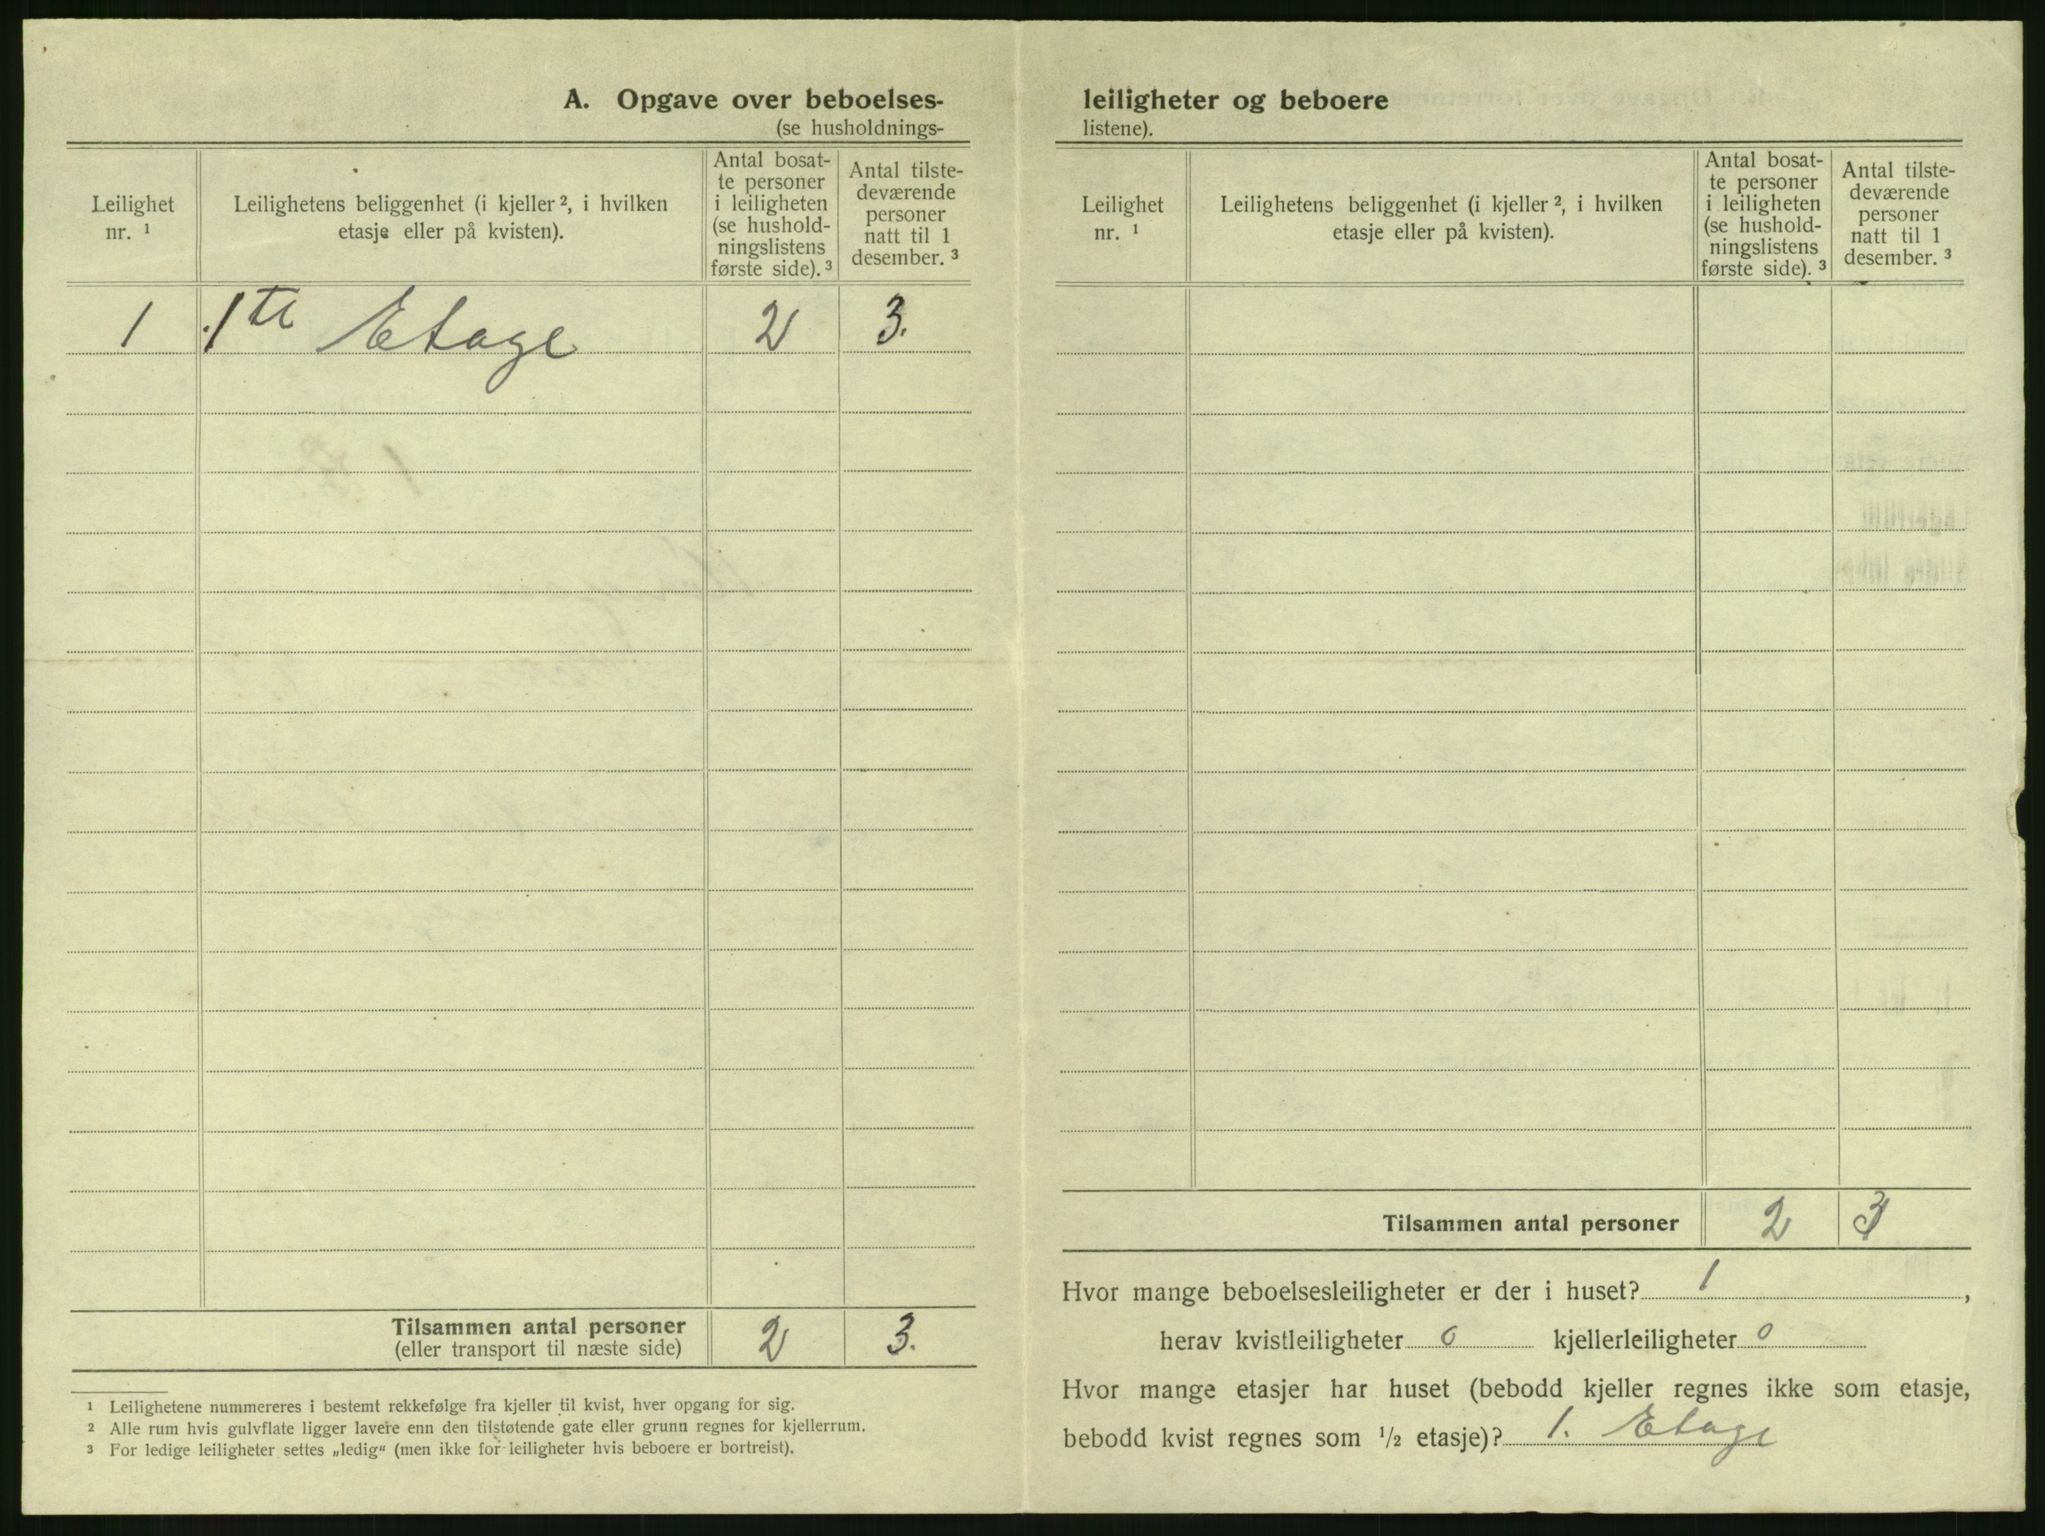 A. Opgave over beboelses-
(se husholdnings-
Leilighet
nr. 1
Leilighetens beliggenhet (i kjeller 2, i hvilken
etasje eller på kvisten).
Antal bosat-
te personer
i leiligheten
(se hushold-
ningslistens
første side). 3
Antal tilste-
deværende
personer
natt til 1
desember. 3
1 1te Etage 2 3.
Tilsammen antal personer 2 3.
(eller transport til næste side)
1 Leilighetene nummereres i bestemt rekkefølge fra kjeller til kvist, hver opgang for sig.
2 Alle rum hvis gulvflate ligger lavere enn den tilstøtende gate eller grunn regnes for kjellerrum.
3 For ledige leiligheter settes „ledig“ (men ikke for leiligheter hvis beboere er bortreist).
leiligheter og beboere
listene).
Leilighet
nr. 1
Leilighetens beliggenhet (i kjeller 2, i hvilken
etasje eller på kvisten).
Antal bosat-
te personer
i leiligheten
(se hushold-
ningslistens
første side). 3
Antal tilste-
deværende
personer
natt til 1
desember. 3
Tilsammen antal personer 2 3
Hvor mange beboelsesleiligheter er der i huset? 1 ,
herav kvistleiligheter 0 kjellerleiligheter 0
Hvor mange etasjer har huset (bebodd kjeller regnes ikke som etasje,
bebodd kvist regnes som 1/2 etasje)? 1. Etage